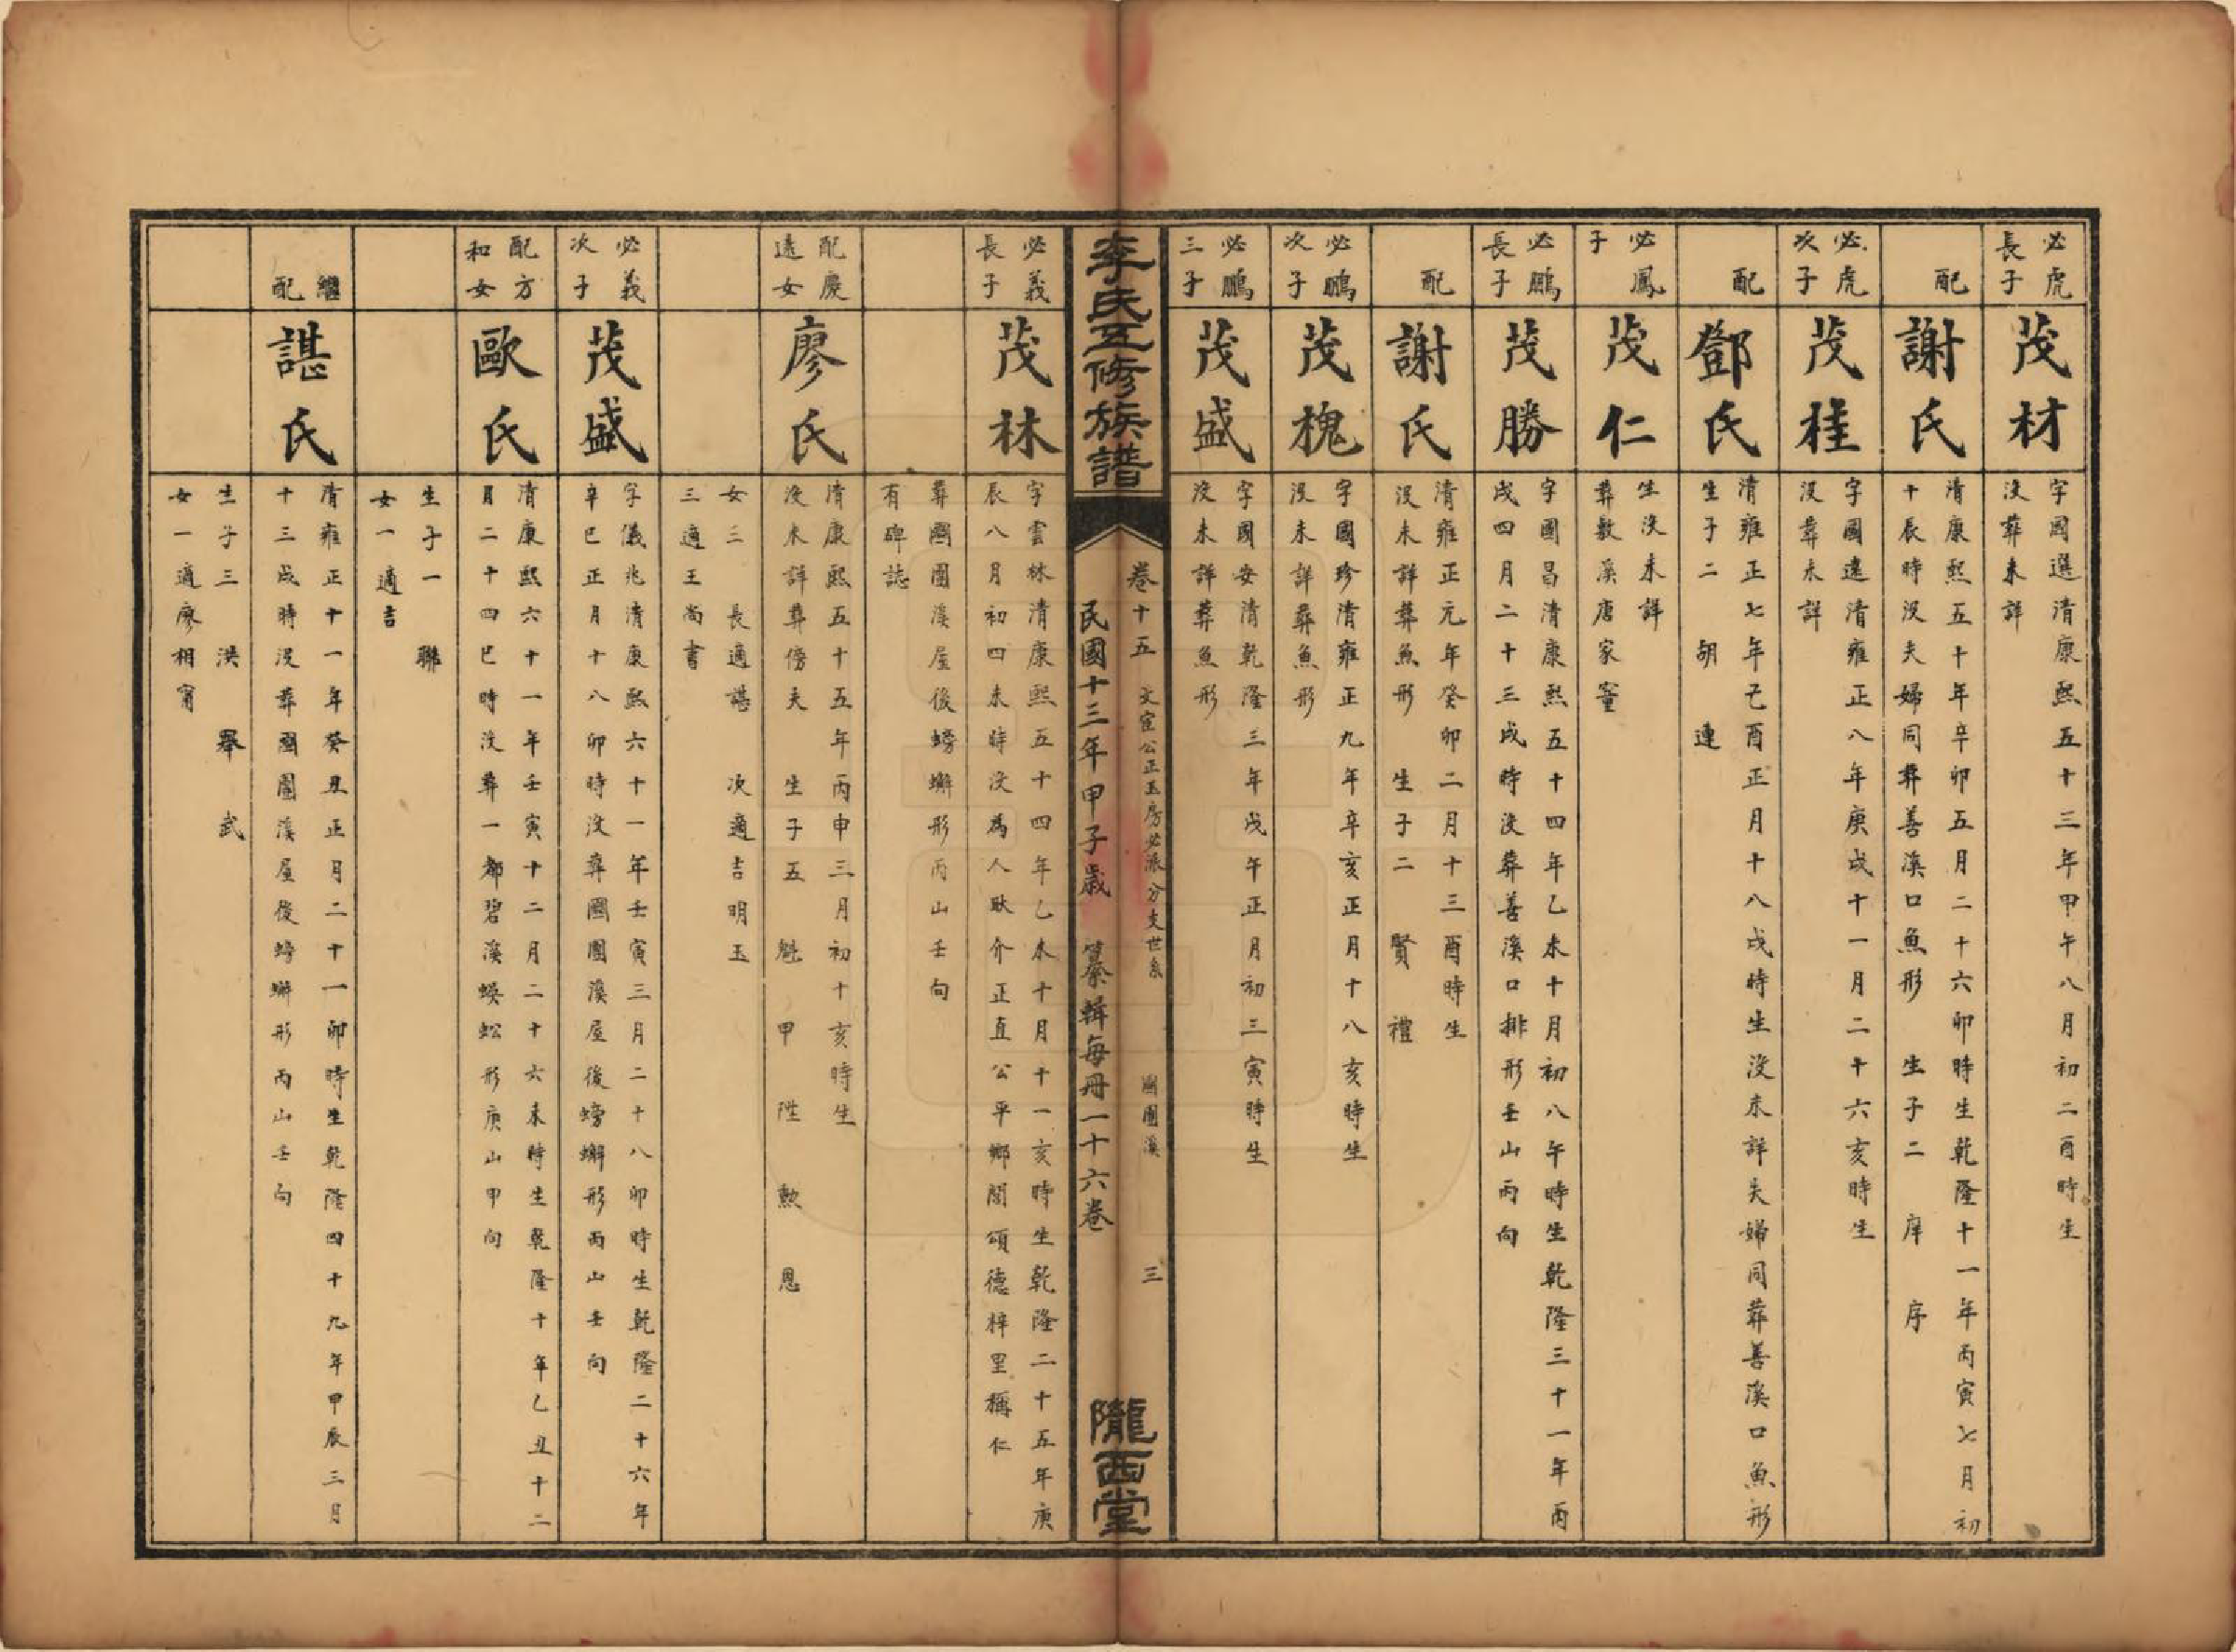 必虎
長子
茂材
字國選清康熙五十三年甲午八月初二酉時生
沒葬未詳
配
謝氏
清康熙五十年辛卯五月二十六卯時生乾隆十一年丙寅七月初
十辰時沒夫婦同葬善溪口魚形 生子二 庠 序
必虎
次子
茂桂
字國遠清雍正八年庚戌十一月二十六亥時生
沒葬未詳
配
鄧氏
清雍正七年己酉正月十八戌時生沒未詳夫婦同葬善溪口魚形
生子二 胡 連
必鳳
子
茂仁
生沒未詳
葬數溪唐家𡩋
必鵬
長子
茂勝
字國昌清康熙五十四年乙未十月初八午時生乾隆三十一年丙
戌四月二十三戌時沒葬善溪口排形壬山丙向
配
謝氏
清雍正元年癸卯二月十三酉時生
沒未詳葬魚形 生子二 賢 禮
必鵬
次子
茂槐
字國珍清雍正九年辛亥正月十八亥時生
沒未詳葬魚形
必鵬
三子
茂盛
字國安清乾隆三年戊午正月初三寅時生
沒未詳葬魚形
李氏五修族譜
卷十五 文宦公正玉房必派分支世系 團團溪 三
民國十三年甲子歲 纂輯每冊一十六卷
隴西堂
必義
長子
茂林
字雲林清康熙五十四年乙未十月十一亥時生乾隆二十五年庚
辰八月初四未時沒為人耿介正直公平鄉閭頌德梓里稱仁
葬團團溪屋後螃蠏形丙山壬向
有碑誌
配慶
遠女
廖氏
清康熙五十五年丙申三月初十亥時生
沒未詳葬傍夫 生子五 魁 甲 陞 勲 恩
女三 長適諶 次適吉明玉
三適王尚書
必義
次子
茂盛
字儀兆清康熙六十一年壬寅三月二十八卯時生乾隆二十六年
辛巳正月十八卯時沒葬團團溪屋後螃蠏形丙山壬向
配方
和女
歐氏
清康熙六十一年壬寅十二月二十六未時生乾隆十年乙丑十二
月二十四巳時沒葬一都碧溪蜈蚣形庚山甲向
生子一 聯
女一適吉
繼
配
諶氏
清雍正十一年癸丑正月二十一卯時生乾隆四十九年甲辰三月
十三戌時沒葬團團溪屋後螃蠏形丙山壬向
生子三 洪 舉 武
女一適廖相甯